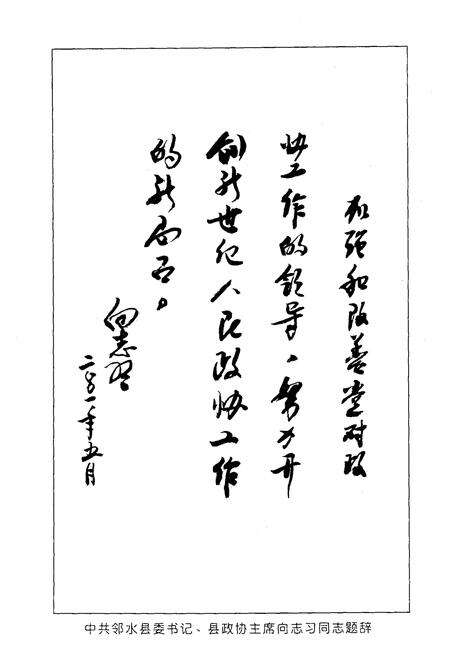 加强和改善党对政
协工作的领导、努力开
创新世纪人民政协工作
的新局面。
向志习
二〇〇一年五月
中共邻水县委书记、县政协主席向志习同志题辞